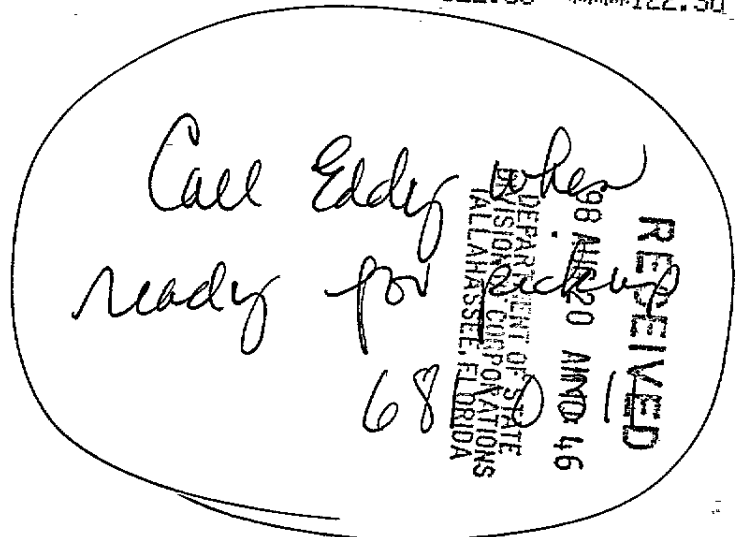 ***122.50
Call Eddy when
ready for pickup
RECEIVED
98 AUG 20 AM 10:46
DEPARTMENT OF STATE
DIVISION OF CORPORATIONS
TALLAHASSEE, FLORIDA